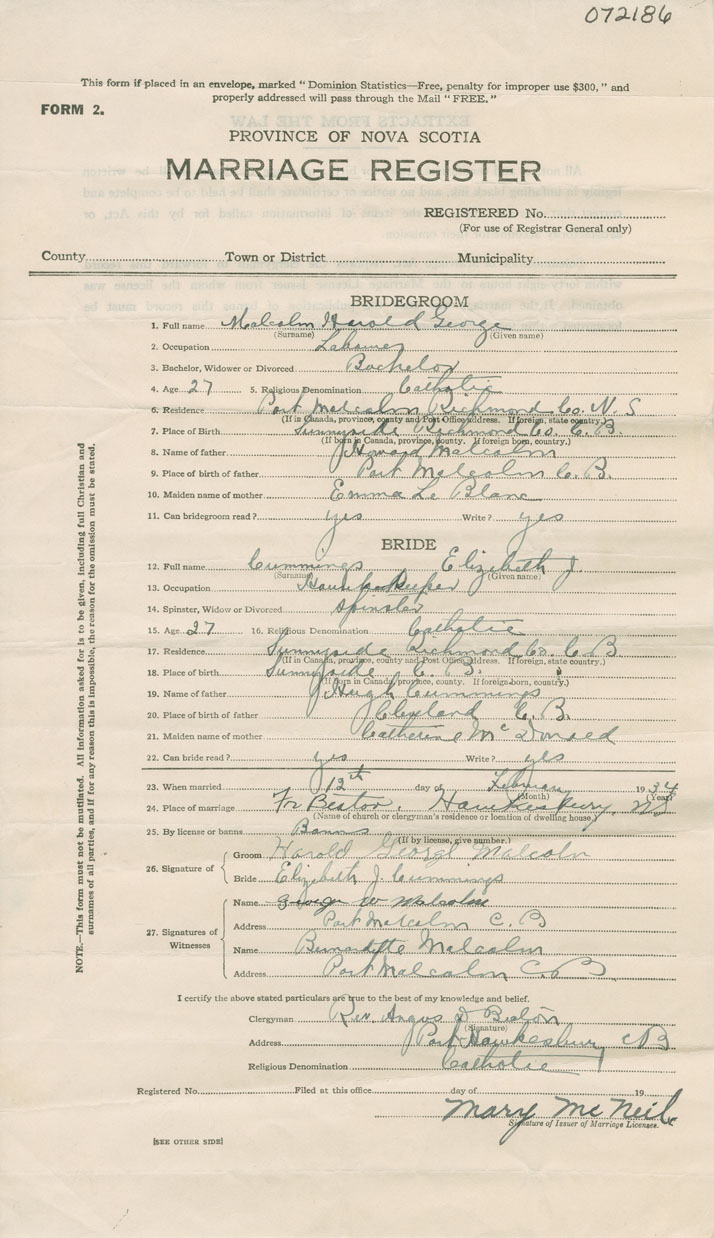 072186
This form if placed in an envelope, marked "Dominion Statistics—Free, penalty for improper use $300," and
properly addressed will pass through the Mail "FREE."
FORM 2.
PROVINCE OF NOVA SCOTIA
MARRIAGE REGISTER
REGISTERED No.
(For use of Registrar General only)
County Town or District Municipality
BRIDEGROOM
1. Full name Malcolm Harold George
(Surname) (Given name)
2. Occupation Labourer
3. Bachelor, Widower or Divorced Bachelor
4. Age 27 5. Religious Denomination Catholic
6. Residence Port Malcolm Richmond Co. N. S
(If in Canada, province, county and Post Office address. If foreign, state country.)
7. Place of Birth Sunnyside Richmond Co. C. B.
(If born in Canada, province, county. If foreign born, country.)
8. Name of father Howard Malcolm
9. Place of birth of father Port Malcolm C. B.
10. Maiden name of mother Emma Le Blanc
11. Can bridegroom read? yes Write? yes
BRIDE
12. Full name Cummings Elizabeth J.
(Surname) (Given name)
13. Occupation Housekeeper
14. Spinster, Widow or Divorced Spinster
15. Age 27 16. Religious Denomination Catholic
17. Residence Sunnyside Richmond Co. C. B
(If in Canada, province, county and Post Office address. If foreign, state country.)
18. Place of birth Sunnyside C. B.
(If born in Canada, province, county. If foreign-born, country.)
19. Name of father Hugh Cummings
20. Place of birth of father C. B.
21. Maiden name of mother Catherine Mc Donald
22. Can bride read? yes Write? yes
23. When married 12th day of February 1934
(Month) (Year)
24. Place of marriage Fr Beaton, Hawkesbury, NS
(Name of church or clergyman's residence or location of dwelling house)
25. By license or banns Banns
(If by license, give number.)
26. Signature of
Groom Harold George Malcolm
Bride Elizabeth J. Cummings
27. Signatures of Witnesses
Name George W Malcolm
Address Port Malcolm C. B
Name Bernadette Malcolm
Address Port Malcolm C B
I certify the above stated particulars are true to the best of my knowledge and belief.
Clergyman Rev. Angus D Beaton
(Signature)
Address Port Hawkesbury CB
Religious Denomination Catholic
Registered No. Filed at this office day of 19
Mary Mc Neil
Signature of Issuer of Marriage Licenses.
[SEE OTHER SIDE]
NOTE.—This form must not be mutilated. All information asked for is to be given, including full Christian and
surnames of all parties, and if for any reason this is impossible, the reason for the omission must be stated.